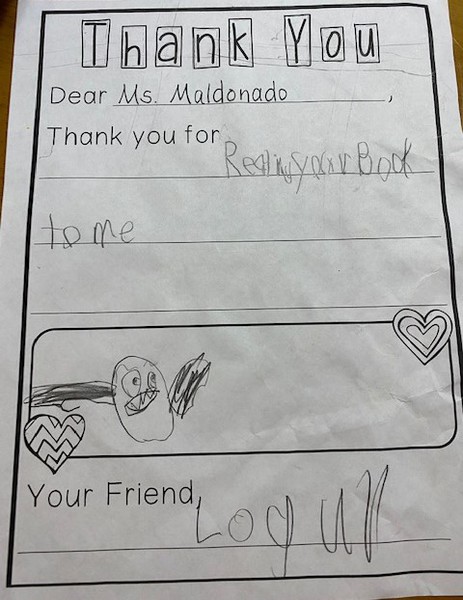 Thank You
Dear Ms. Maldonado,
Thank you for
Reading your Book
to me
Your Friend,